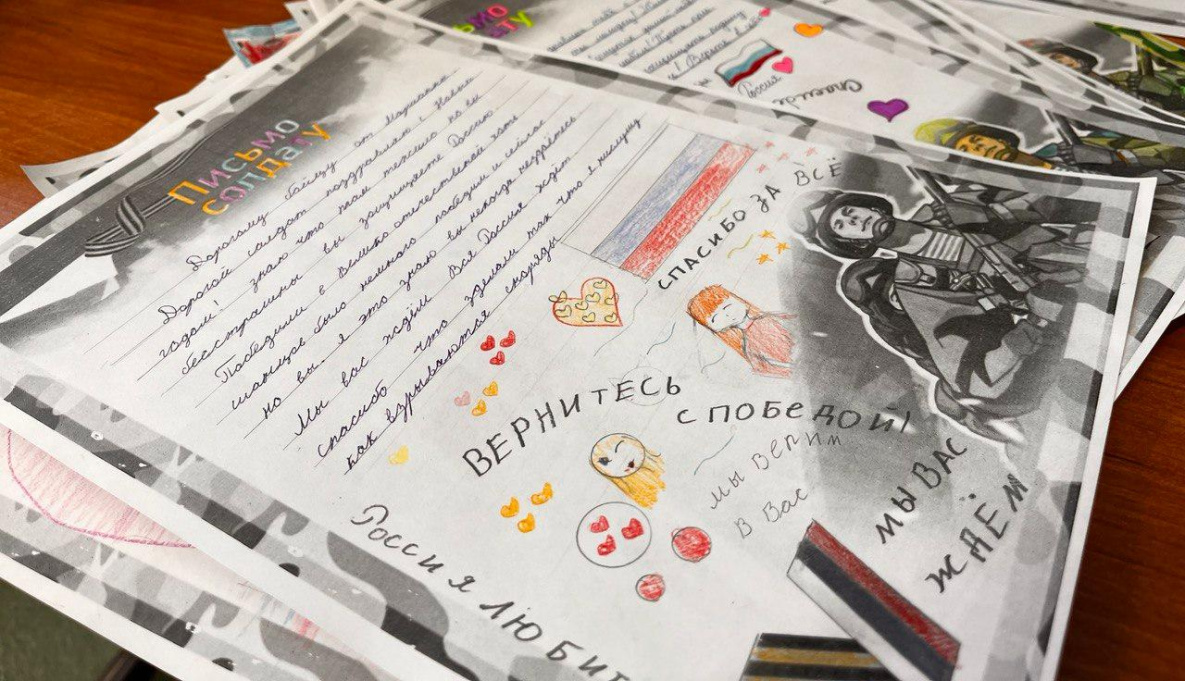 Письмо
солдату
Дорогому бойцу от Марианна.
Дорогой солдат поздравляю с Новым
годом! Знаю что вам тяжело но вы
бесстрашны вы защищаете Россию
Победили в Великой отечественной хотя
шансов было немного победим и сейчас
но вы. Я это знаю вы некогда нездаётесь
Мы вас ждём Вся Россия ждёт
спасиб что зделали так что я неслышу
как взрываются снаряды
СПАСИБО ЗА ВСЁ
ВЕРНИТЕСЬ
С ПОБЕДОЙ!
мы верим
в Вас
МЫ ВАС
ЖДЁМ
РОССИЯ ЛЮБИТ
Письмо
солдату
Россия
Спасибо